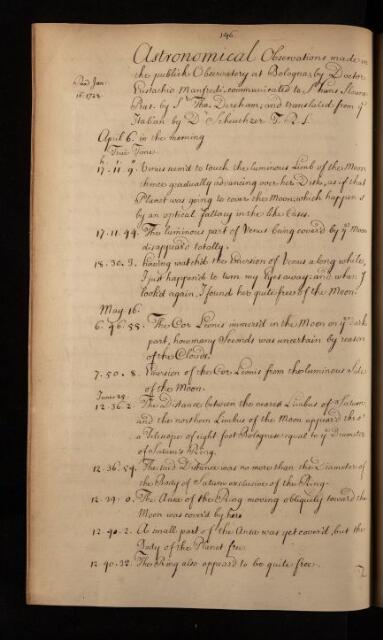 146
Astronomical Observations made in
the publick Observatory at Bologna, by Doctor
Read Jan:
16. 1728
Eustachio Manfredi, communicated to Sr. Hans Sloane
Bart. by Sr. Tho. Dereham; and translated from ye
Italian by Dr. Scheuchzer F. R. S.
April 6. in the morning
True Time
h. ' "
17. 11. 9. Venus seem'd to touch the luminous Limb of the Moon
hence gradually advancing over her Disk, as if that
Planet was going to cover the Moon; which happens
by an optical fallacy in the like Cases.
17. 11. 44. The luminous part of Venus being cover'd by ye Moon
disappear'd totally.
18. 30. 3. having watch'd the Emersion of Venus a long while,
I just happen'd to turn my Eyes away: and when I
look'd again, I found her quite free of the Moon.
May 16.
6. 46. 58. The Cor Leonis immers'd in the Moon on ye dark
part, how many Seconds was uncertain by reason
of the Clouds.
7. 50. 8. Emersion of the Cor Leonis from the luminous Side
of the Moon.
June 29.
12. 36. 2. The Distance between the nearest Limbus of Saturn
and the northern Limbus of the Moon appear'd thro'
a Telescope of eight foot Bolognese equal to ye Diameter
of Saturn's Ring.
12. 36. 54. The said Distance was no more than the Diameter of
the Body of Saturn exclusive of the Ring.
12. 39. 0. The Ansa of the Ring moving obliquely toward the
Moon was cover'd by her.
12. 40. 2. A small part of the Ansa was yet cover'd, but the
Body of the Planet free
12. 40. 32. The Ring also appear'd to be quite free.